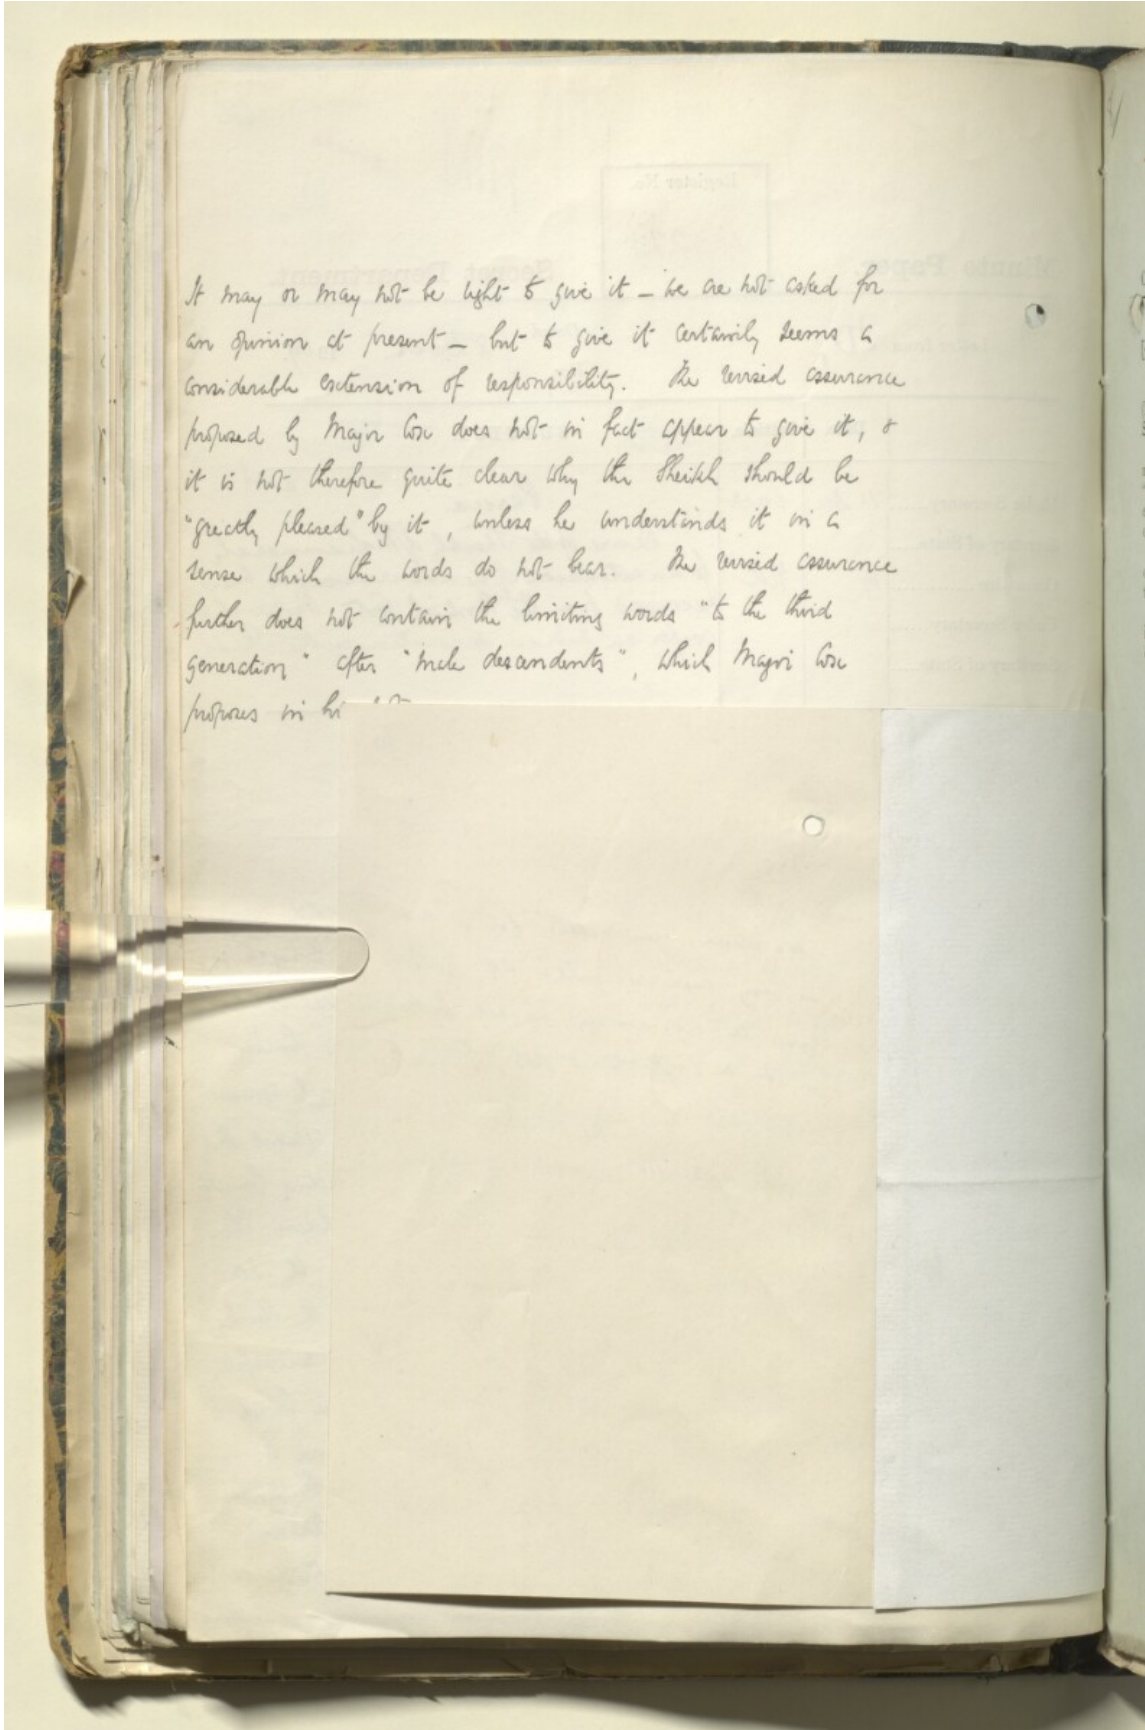 It may or may not be right to give it – we are not asked for
an opinion at present – but to give it certainly seems a
considerable extension of responsibility. The revised assurance
proposed by Major Cox does not in fact appear to give it, &
it is not therefore quite clear why the Sheikh should be
"greatly pleased" by it, unless he understands it in a
sense which the words do not bear. The revised assurance
further does not contain the limiting words "to the third
generation" after "male descendents", which Major Cox
proposes in